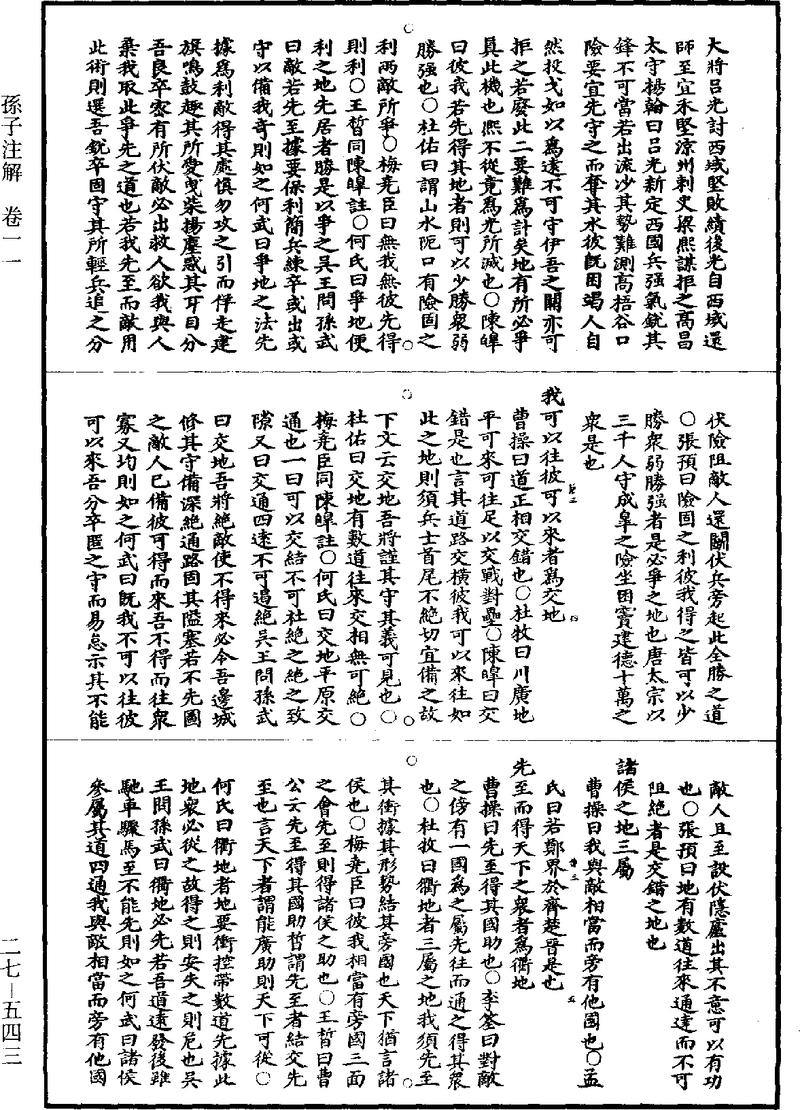 大將呂光討西域堅敗績後光自西域還
師至宜禾堅涼州刺史梁熙謀拒之高昌
太守楊翰曰呂光新定西國兵强氣銳其
鋒不可當若出流沙其勢難測高梧谷口
險要宜先守之而奪其水彼既困渴人自
然投戈如以爲遠不可守伊吾之關亦可
拒之若廢此二要難爲計矣地有所必爭
真此機也熙不從竟爲光所滅也○陳皥
曰彼我若先得其地者則可以少勝衆弱
勝强也○杜佑曰謂山水阨口有險固之
利兩敵所爭○梅堯臣曰無我無彼先得
則利○王晳同陳皥註○何氏曰爭地便
利之地先居者勝是以爭之吳王問孫武
曰敵若先至據要保利簡兵練卒或出或
守以備我奇則如之何武曰爭地之法先
據爲利敵得其處愼勿攻之引而佯走建
旗鳴鼓趣其所愛曳柴揚塵惑其耳目分
吾良卒密有所伏敵必出救人欲我與人
棄我取此爭先之道也若我先至而敵用
此術則選吾銳卒固守其所輕兵追之分
伏險阻敵人還鬬伏兵旁起此全勝之道
○張預曰險固之利彼我得之皆可以少
勝衆弱勝强者是必爭之地也唐太宗以
三千人守成臯之險坐困竇建德十萬之
衆是也
我可以往彼可以來者爲交地
曹操曰道正相交錯也○杜牧曰川廣地
平可來可往足以交戰對壘○陳皥曰交
錯是也言其道路交横彼我可以來往如
此之地則須兵士首尾不絶切宜備之故
下文云交地吾將謹其守其義可見也○
杜佑曰交地有數道往來交相無可絶○
梅堯臣同陳皥註○何氏曰交地平原交
通也一曰可以交結不可杜絶之絶之致
隙又曰交通四遠不可遏絶吳王問孫武
曰交地吾將絶敵使不得來必令吾邊城
修其守備深絶通路固其隘塞若不先圖
之敵人已備彼可得而來吾不得而往衆
寡又均則如之何武曰既我不可以往彼
可以來吾分卒匿之守而易怠示其不能
敵人且至設伏隱廬出其不意可以有功
也○張預曰地有數道往來通達而不可
阻絶者是交錯之地也
諸侯之地三屬
曹操曰我與敵相當而旁有他國也○孟
氏曰若鄭界於齊楚晉是也
先至而得天下之衆者爲衢地
曹操曰先至得其國助也○李筌曰對敵
之傍有一國爲之屬先往而通之得其衆
也○杜牧曰衢地者三屬之地我須先至
其衝據其形勢結其旁國也天下猶言諸
侯也○梅堯臣曰彼我相當有旁國三面
之會先至則得諸侯之助也○王晳曰曹
公云先至得其國助晳謂先至者結交先
至也言天下者謂能廣助則天下可從○
何氏曰衢地者地要衝控帶數道先據此
地衆必從之故得之則安失之則危也吳
王問孫武曰衢地必先若吾道遠發後雖
馳車驟馬至不能先則如之何武曰諸侯
參屬其道四通我與敵相當而旁有他國
孫子注解　卷一一
二七－五四三